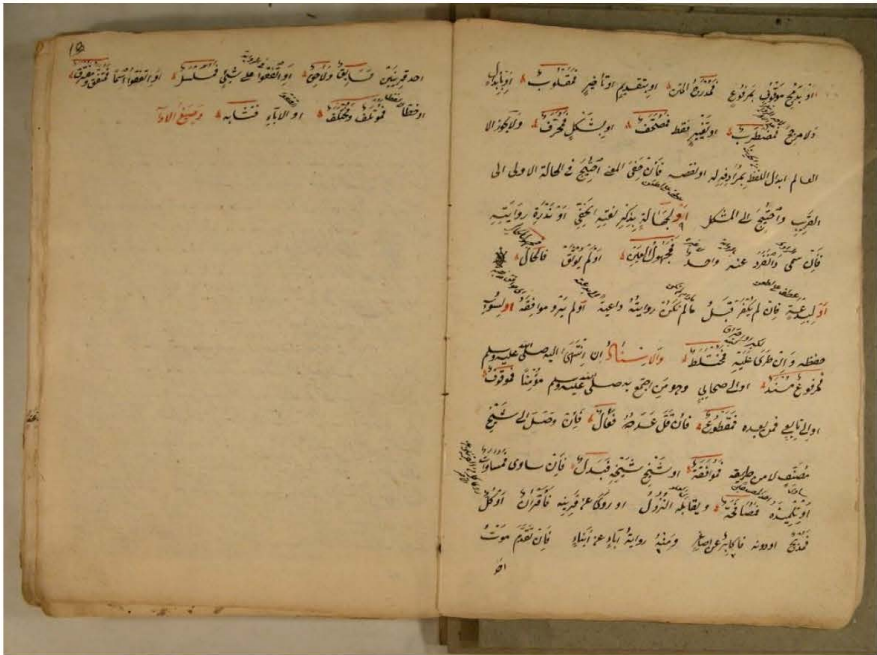 او بدمج موقوف بمرفوع فمدرج المتن او بتقديم او تأخير فمقلوب او بابدال
ولا مرجح فمضطرب او بتغيير نقط فمصحف او بشكل فمحرف ولا يجوز الا
لعالم ابدال اللفظ بمرادف له او نقصه فان خفى المعنى احتيج فى الحالة الاولى الى
الغريب واحتيج الى المشكل او لجهالة بذكر نعته الخفى او ندرة روايته
فان سمى وانفرد عنه واحد فمجهول العين او لم يوثق فالحال
او لبدعة فان لم يكفر قبل ما لم تكن روايته داعية او لم يرو موافقه او لسوء
حفظه وان طرئ عليه فمختلط والاسناد ان انتهى اليه صلى الله عليه وسلم
فمرفوع مسند او الى صحابى وهو من اجتمع به صلى الله عليه وسلم مؤمنا فموقوف
او الى تابعى فمن بعده فمقطوع فان قل عدده فعال فان وصل الى شيخ
مصنف لا من طريقه فموافقة او شيخ شيخه فبدل فان ساوى فمساواة
او تلميذه فمصافحة ويقابله النزول او روى عن قرينه فأقران او كل
فمدبج او دونه فاكابر عن اصاغر ومنه رواية آباء عن ابناء فان تقدم موت
احد
احد قرينين فسابق ولاحق او اتفقوا على شئ فمسلسل او اتفقوا اسما فمتفق ومفترق
او خطا فمؤتلف ومختلف او الآباء فمتشابه وصيغ الاداء